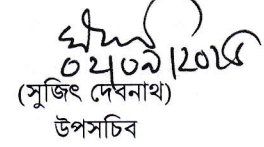 ০২/০৯/2025
(সুজিৎ দেবনাথ)
উপসচিব